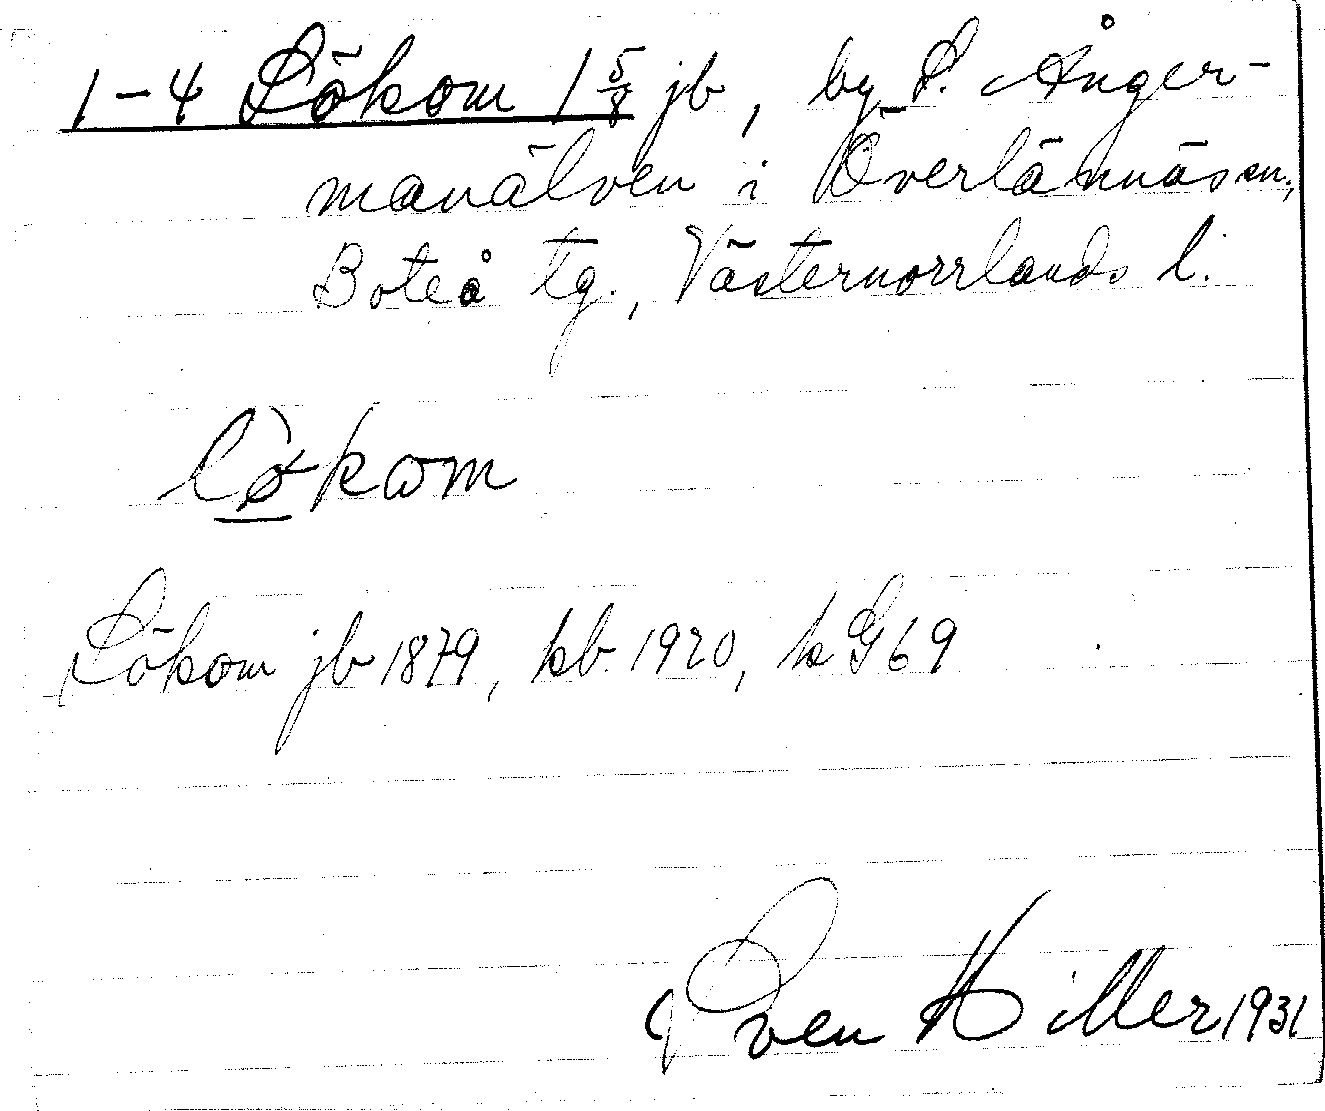 1-4 Lökom 1 5/8 jb, by S. Ånger-
manälven i Överlännäs sn,
Boteå tg., Västernorrlands l.
lø̀kωm
Lökom jb 1879, kb 1920, k G69
Sven Hiller 1931